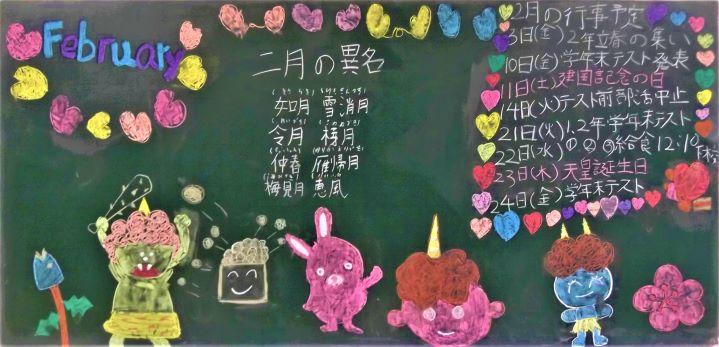 February
二月の異名
如月 雪消月
令月 梅月
仲春 雁帰月
梅見月 恵風
2月の行事予定
3日(金)2年立春の集い
10日(金)学年末テスト発表
11日(土)建国記念の日
14日(火)テスト前部活中止
21日(火)1.2年学年末テスト
22日(水)①②③給食12:10下校
23日(木)天皇誕生日
24日(金)学年末テスト